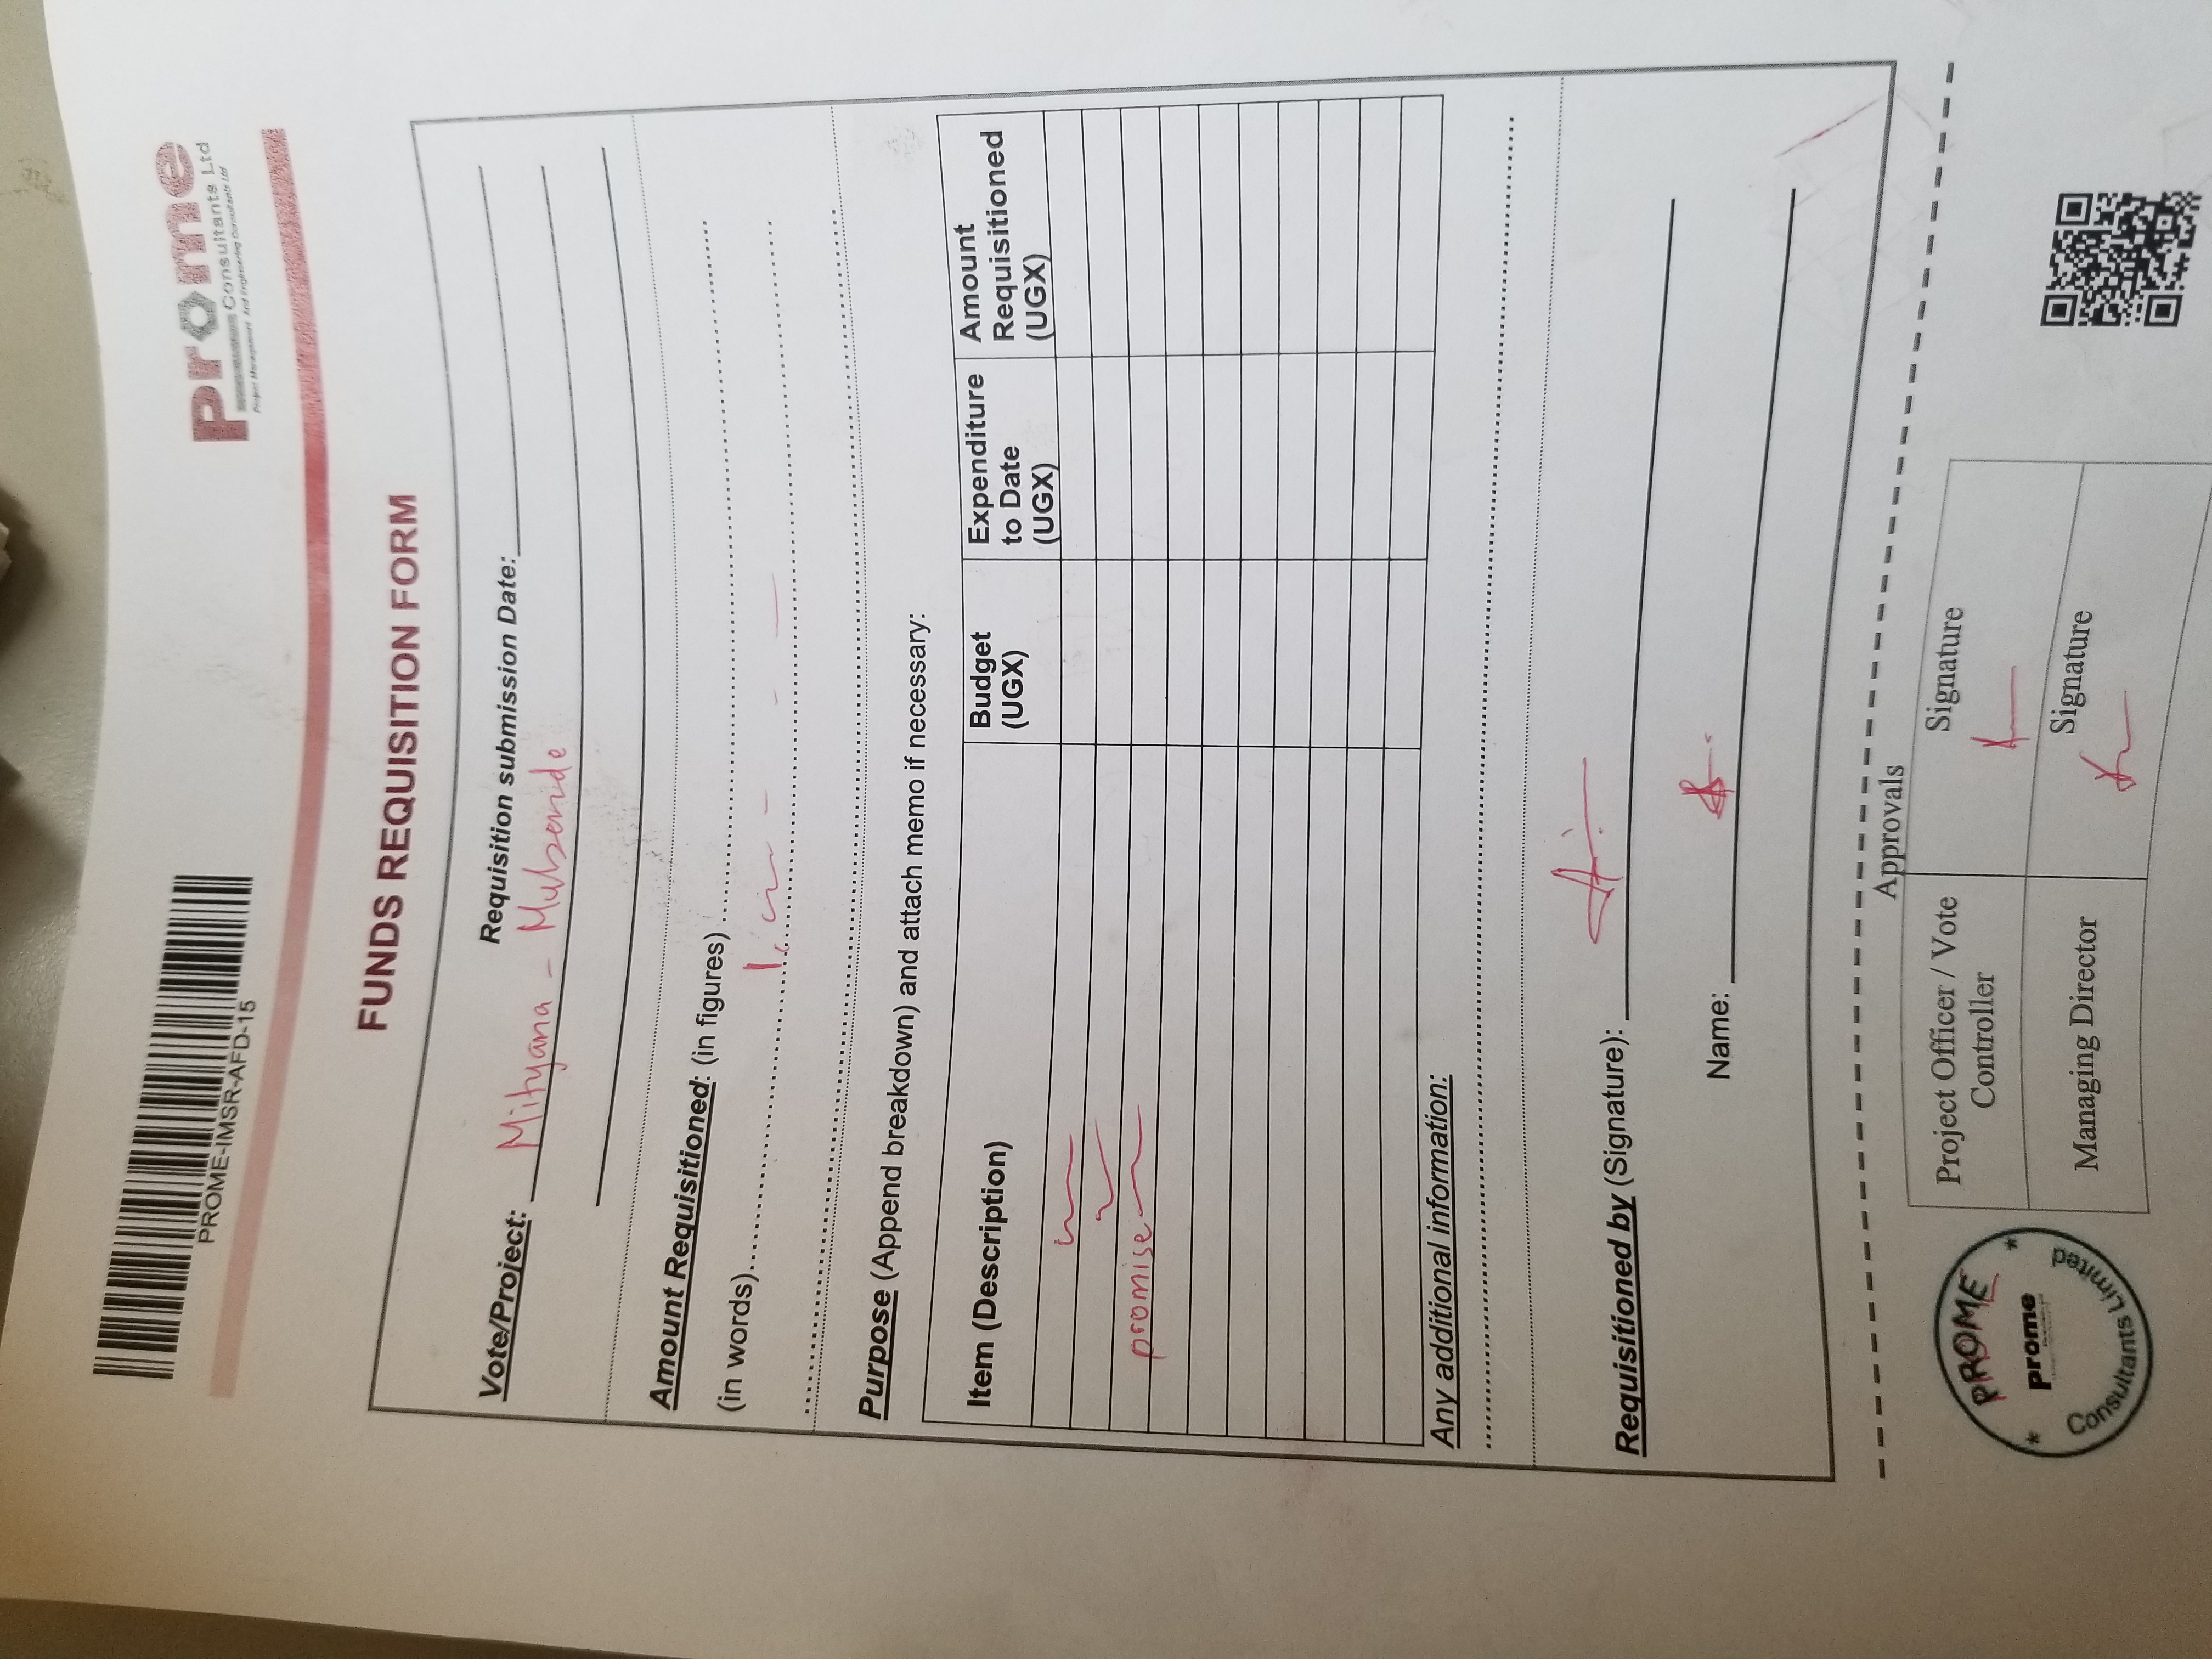 PROME-IMSR-AFD-15
prome
Consultants Ltd
Project Management And Engineering Consultants Ltd
FUNDS REQUISITION FORM
Requisition submission Date:
Vote/Project: Mityana - Mubende
Amount Requisitioned: (in figures)
(in words)
Purpose (Append breakdown) and attach memo if necessary:
Item (Description) Budget (UGX) Expenditure to Date (UGX) Amount Requisitioned (UGX)
promise
Any additional information:
Requisitioned by (Signature):
Name:
Approvals
Project Officer / Vote Controller Signature
Managing Director Signature
PROME
prome
Consultants Limited